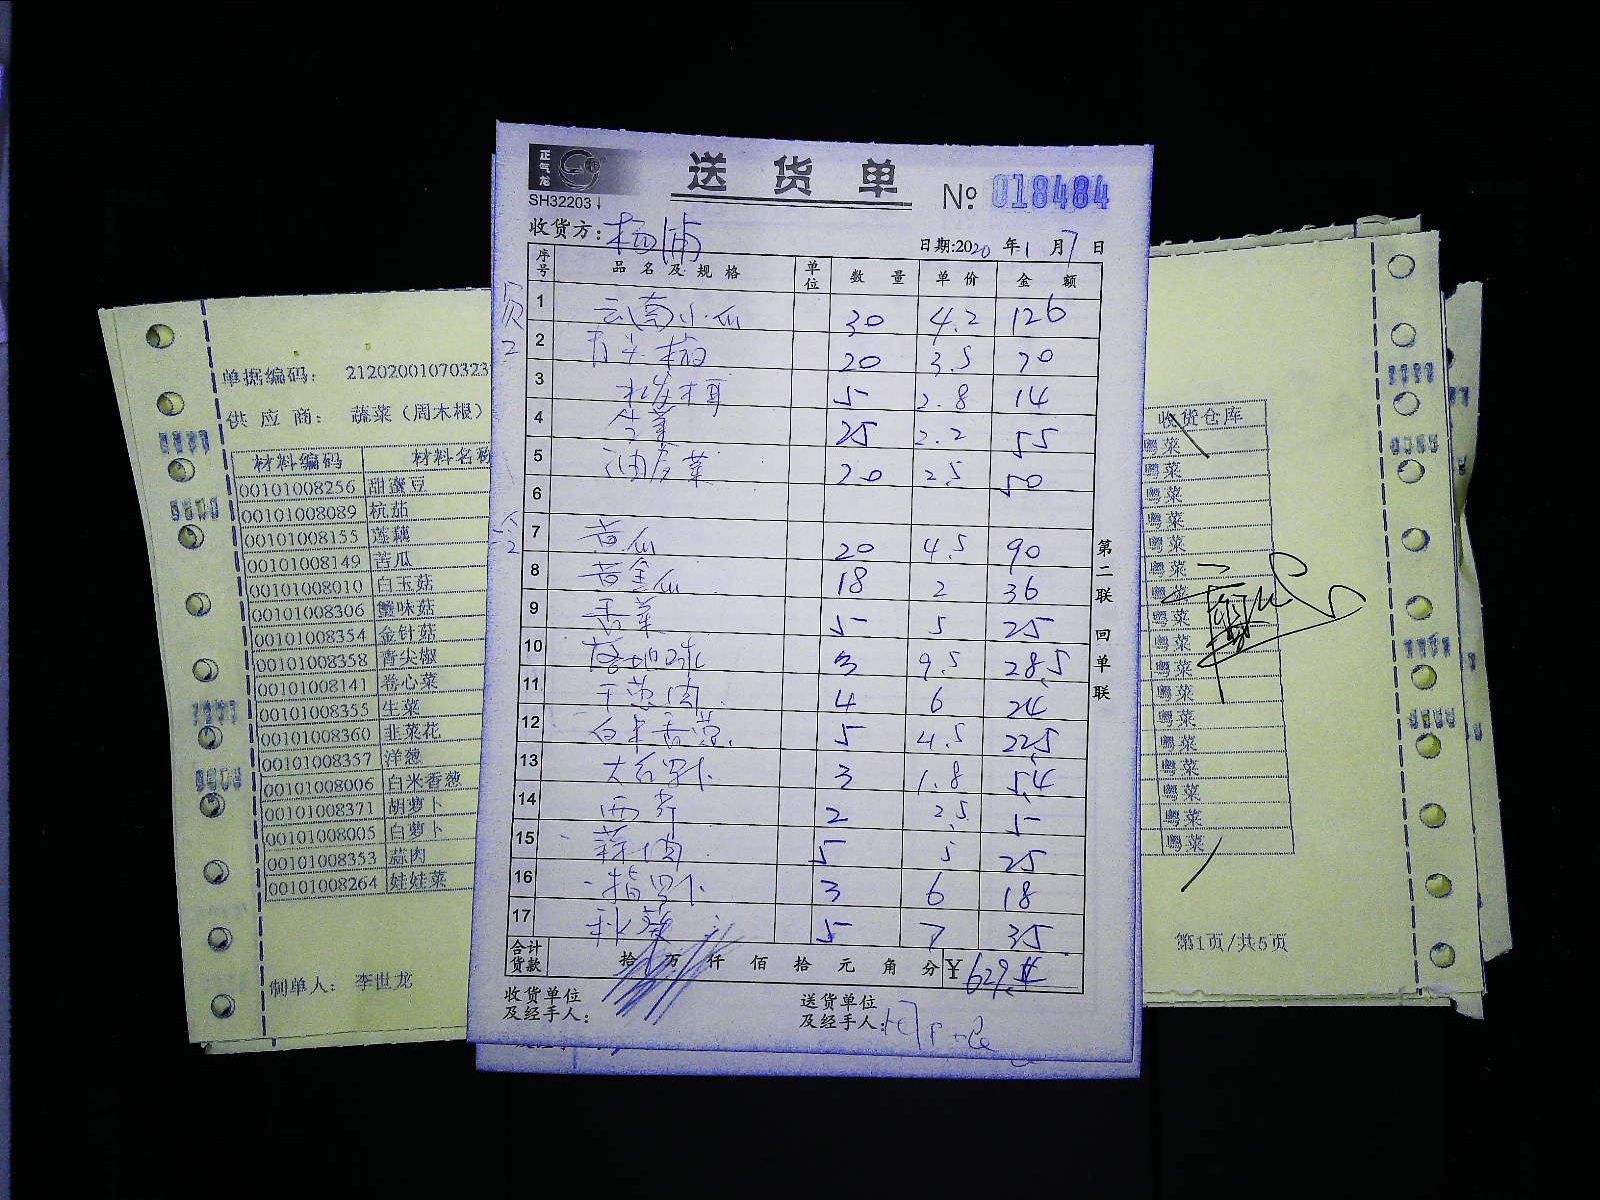 正气龙
SH32203
送货单
№ 018484
收货方：杨浦
日期:2020年1月7日
序号 品名及规格 单位 数量 单价 金额
1 云南小瓜 30 4.2 126
2 青尖椒 20 3.5 70
3 5 2.8 14
4 生菜 25 2.2 55
5 油麦菜 20 2.5 50
6
7 黄瓜 20 4.5 90
8 黄金瓜 18 2 36
9 5 5 25
10 3 9.5 28.5
11 干葱肉 4 6 24
12 白米香葱 5 4.5 22.5
13 大白罗卜 3 1.8 5.4
14 西芹 2 2.5 5
15 蒜肉 5 5 25
16 指罗卜 3 6 18
17 5 7 35
合计货款 拾 万 仟 佰 拾 元 角 分 ¥ 629.4
收货单位及经手人：
送货单位及经手人：
第二联 回单联
单据编码： 2120200107032
供应商： 蔬菜（周木根）
材料编码 材料名称
00101008256 甜蜜豆
00101008089 杭茄
00101008155 莲藕
00101008149 苦瓜
00101008010 白玉菇
00101008306 蟹味菇
00101008354 金针菇
00101008358 青尖椒
00101008141 卷心菜
00101008355 生菜
00101008360 韭菜花
00101008357 洋葱
00101008006 白米香葱
00101008371 胡萝卜
00101008005 白萝卜
00101008353 蒜肉
00101008264 娃娃菜
制单人： 李世龙
收货仓库
粤菜
粤菜
粤菜
粤菜
粤菜
粤菜
粤菜
粤菜
粤菜
粤菜
粤菜
粤菜
粤菜
粤菜
粤菜
粤菜
粤菜
第1页/共5页